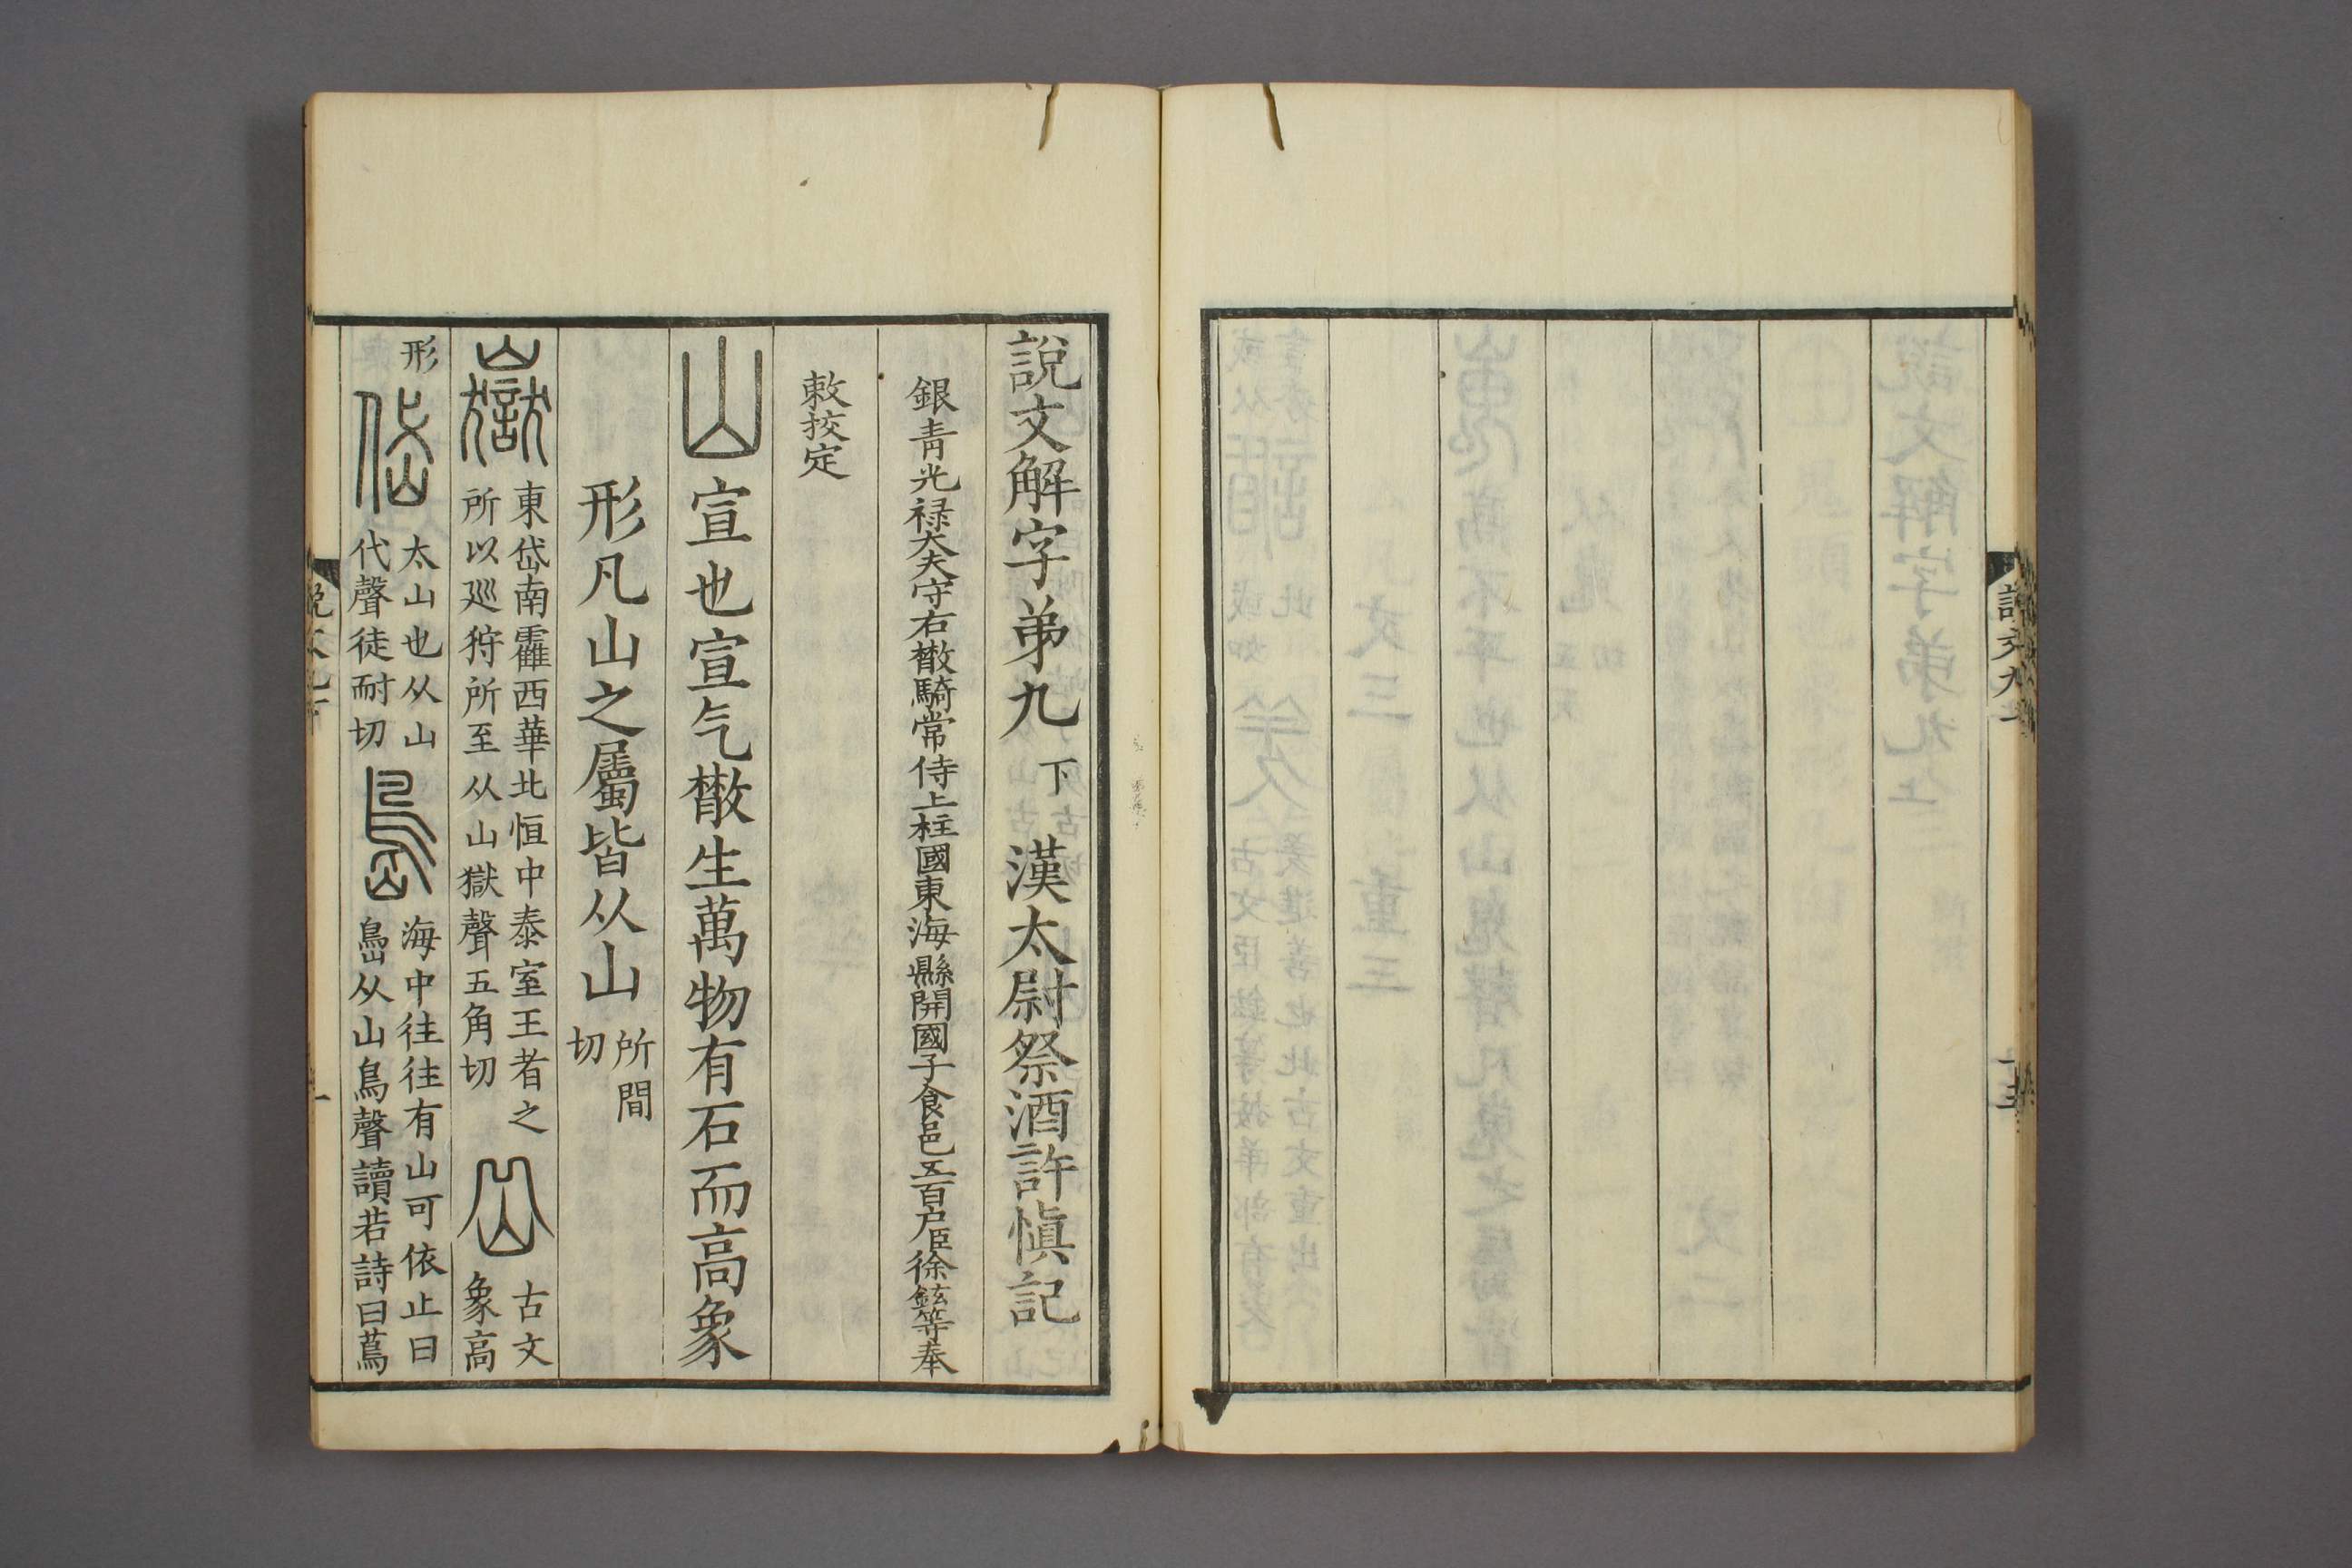 說文九上
十三
說文解字弟九下 漢太尉祭酒許愼記
銀青光禄大夫守右㪔騎常侍上柱國東海縣開國子食邑五百户臣徐鉉等奉
敕挍定
山 宣也宣气㪔生萬物有石而高象
形凡山之屬皆从山 所閒
切
嶽 東岱南靃西華北恒中泰室王者之
所以廵狩所至从山獄聲五角切
古文
象高
形
岱 太山也从山
代聲徒耐切
島 海中往往有山可依止曰
島从山鳥聲讀若詩曰蔦
說文九下
一